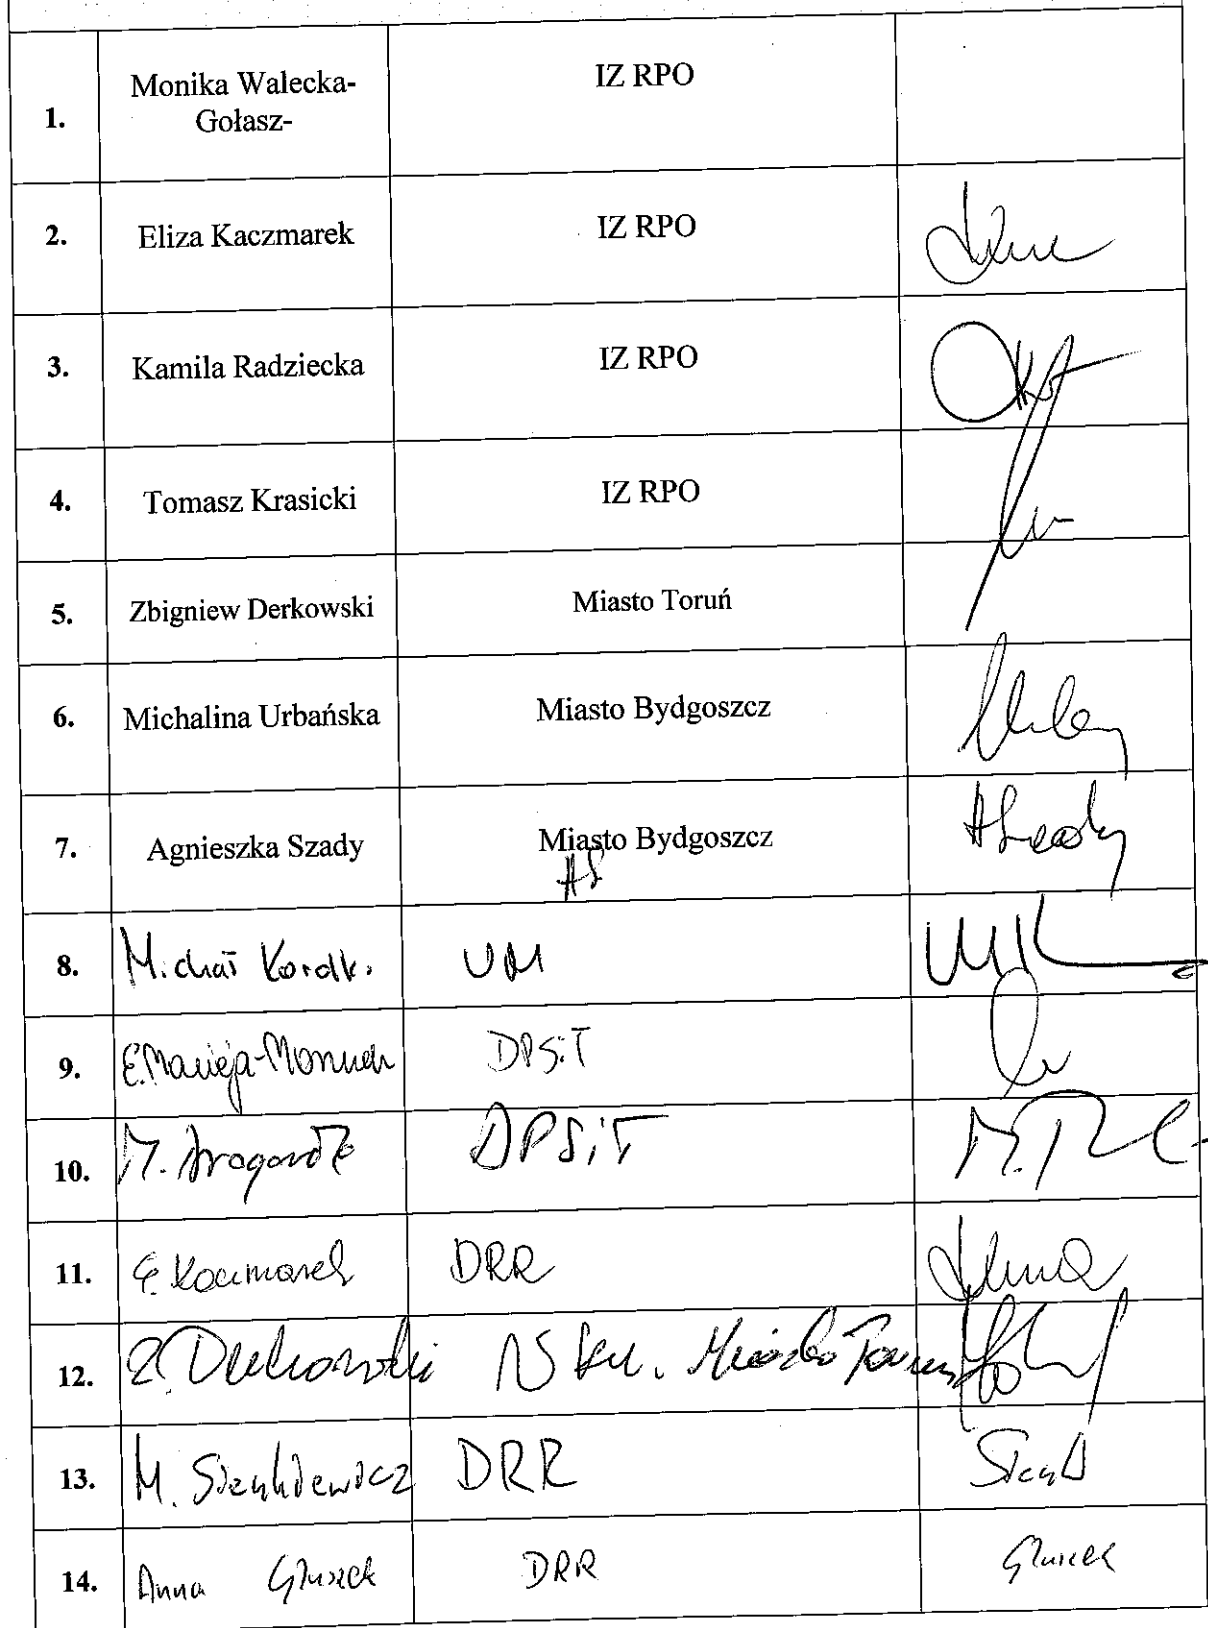 1. Monika Walecka- IZ RPO
Gołasz-
2. Eliza Kaczmarek IZ RPO
3. Kamila Radziecka IZ RPO
4. Tomasz Krasicki IZ RPO
5. Zbigniew Derkowski Miasto Toruń
6. Michalina Urbańska Miasto Bydgoszcz
7. Agnieszka Szady Miasto Bydgoszcz ASzady
AS
8. UM MK
9. DPSiT
10. M. DPSiT
11. E. Kaczmarek DRR
12. Z. Derkowski Miasto Toruń
13. M. Sienkiewicz DRR
14. Anna DRR